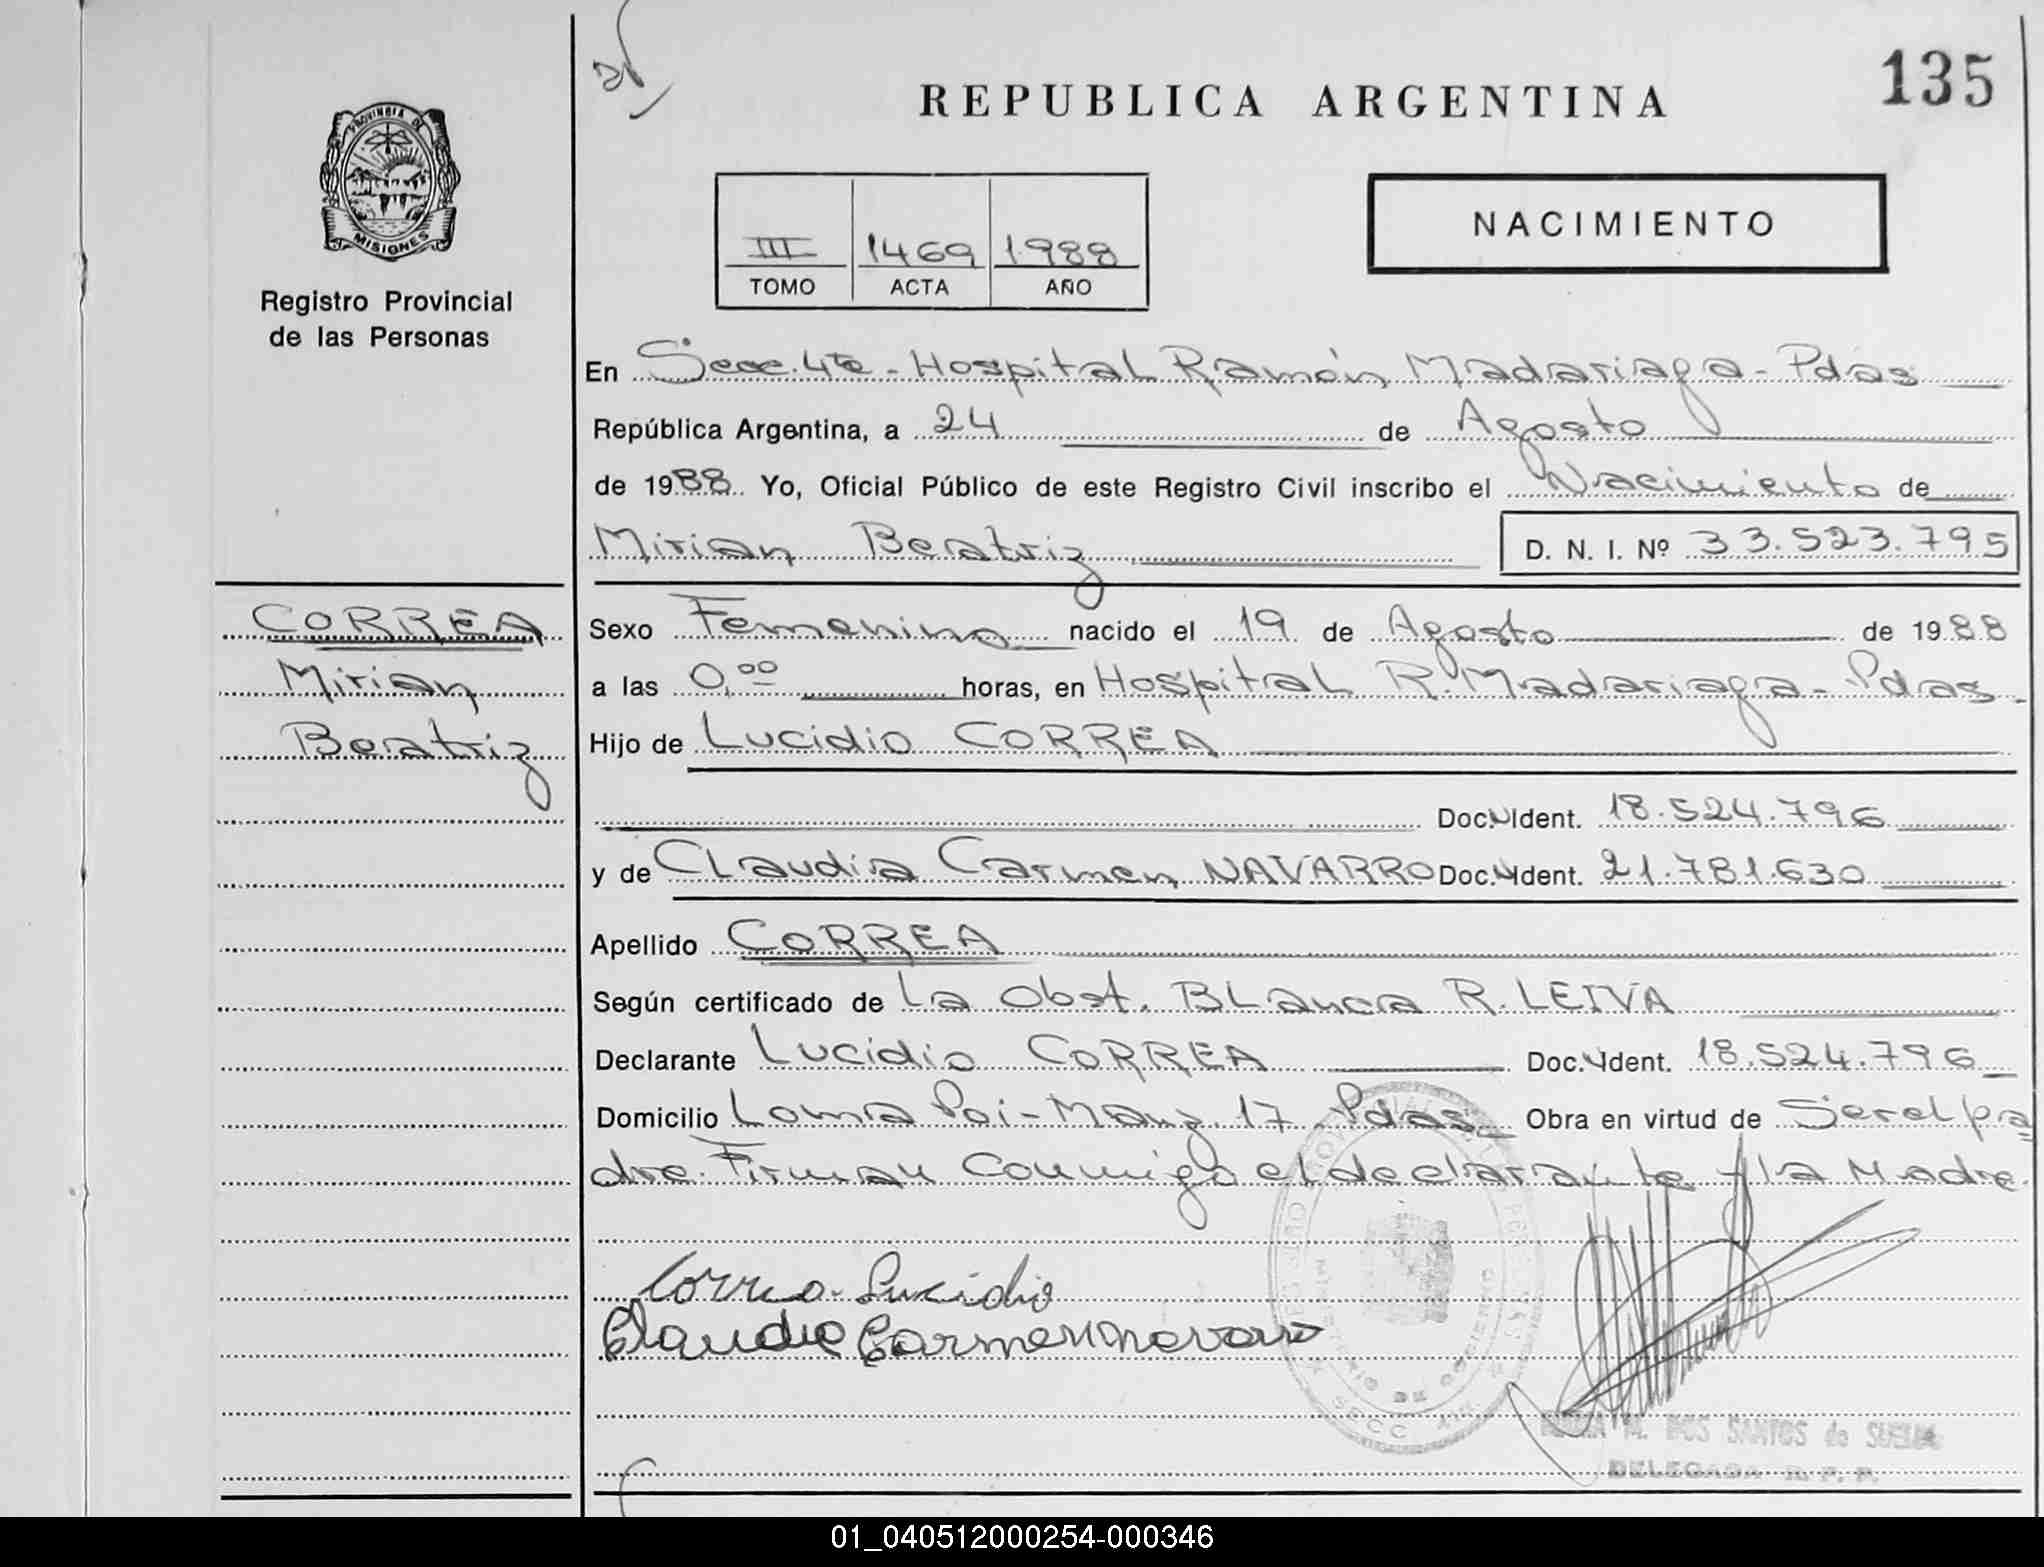 135
REPUBLICA ARGENTINA
PROVINCIA DE
MISIONES
Registro Provincial
de las Personas
NACIMIENTO
III 1469 1.988
TOMO ACTA AÑO
En Secc. 4ta - Hospital Ramón Madariaga - Pdas
República Argentina, a 24 de Agosto
de 1988. Yo, Oficial Público de este Registro Civil inscribo el Nacimiento de
Mirian Beatriz D. N. I. Nº 33.523.795
CORREA
Mirian
Beatriz
Sexo Femenino nacido el 19 de Agosto de 1988
a las 0,00 horas, en Hospital R. Madariaga - Pdas.
Hijo de Lucidio CORREA
Doc. Ident. 18.524.796
y de Claudia Carmen NAVARRO Doc. Ident. 21.781.630
Apellido CORREA
Según certificado de La Obst. Blanca R. LEIVA
Declarante Lucidio CORREA Doc. Ident. 18.524.796
Domicilio Loma Poi - Manz 17 - Pdas Obra en virtud de Ser el pa
dre. Firman Conmigo el declarante y la Madre.
Correa Lucidio
Claudia Carmen navarro
MINISTERIO DE GOBIERNO
SECC 4ta
M. DOS SANTOS de
DELEGADA R. P. P.
01_040512000254-000346